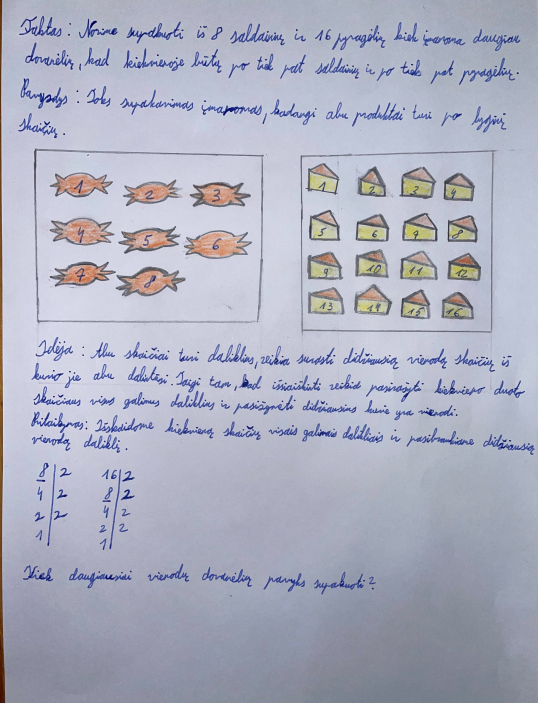 Faktas: Norime supakuoti iš 8 saldainių ir 16 pyragėlių kiek įmanoma daugiau
dovanėlių, kad kiekvienoje būtų po tiek pat saldainių ir po tiek pat pyragėlių.
Pavyzdys: Toks supakavimas įmanomas, kadangi abu produktai turi po lyginį
skaičių.
1 2 3
4 5 6
7 8
1 2 3 4
5 6 7 8
9 10 11 12
13 14 15 16
Idėja: Abu skaičiai turi daliklius, reikia surasti didžiausią vienodą skaičių iš
kurio jie abu dalintųsi. Taigi tam, kad išsiaiškinti reikia pasirašyti kiekvieno duoto
skaičiaus visus galimus daliklius ir pasižymėti didžiausius kurie yra vienodi.
Pritaikymas: Išskaidome kiekvieną skaičių visais galimais dalikliais ir pasibraukiame didžiausią
vienodą daliklį.
8 | 2 16 | 2
4 | 2 8 | 2
2 | 2 4 | 2
1 | 2 | 2
1 |
Kiek daugiausiai vienodų dovanėlių pavyks supakuoti?